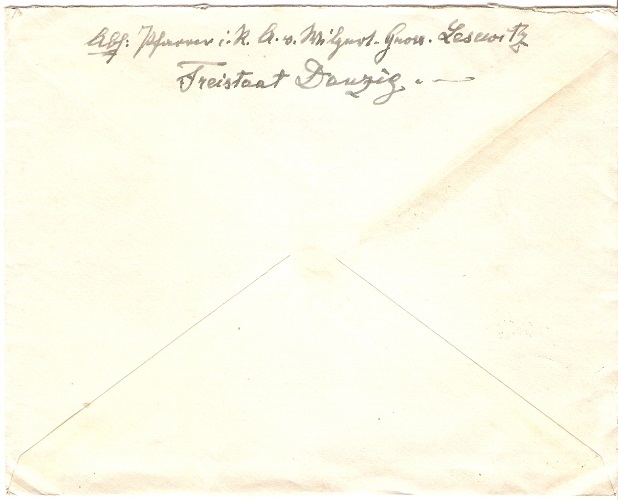 Abs: Pfarrer i. R. A. v. Gross- Lesewitz
Freistaat Danzig. —